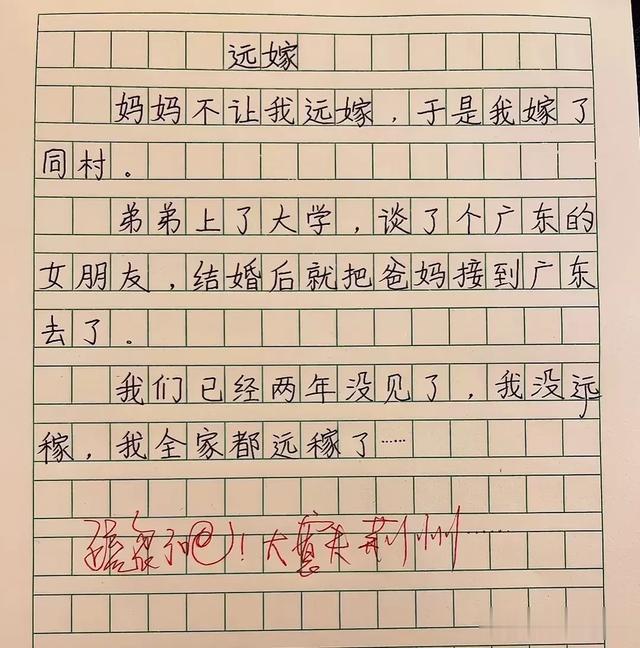 远嫁
妈妈不让我远嫁，于是我嫁了
同村。
弟弟上了大学，谈了个广东的
女朋友，结婚后就把爸妈接到广东
去了。
我们已经两年没见了，我没远
稼，我全家都远稼了……
！大意失荆州……